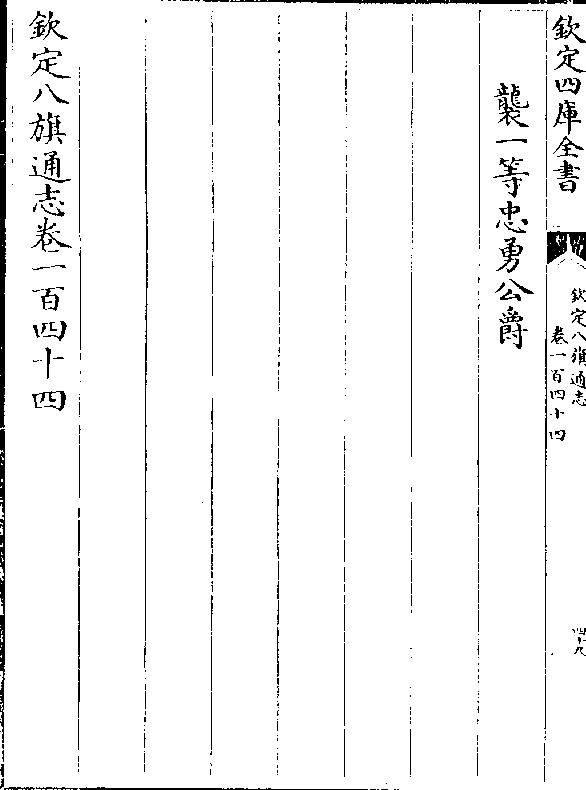 欽定四庫全書
欽定八旗通志
卷一百四十四
四十九
襲一等忠勇公爵
欽定八旗通志卷一百四十四